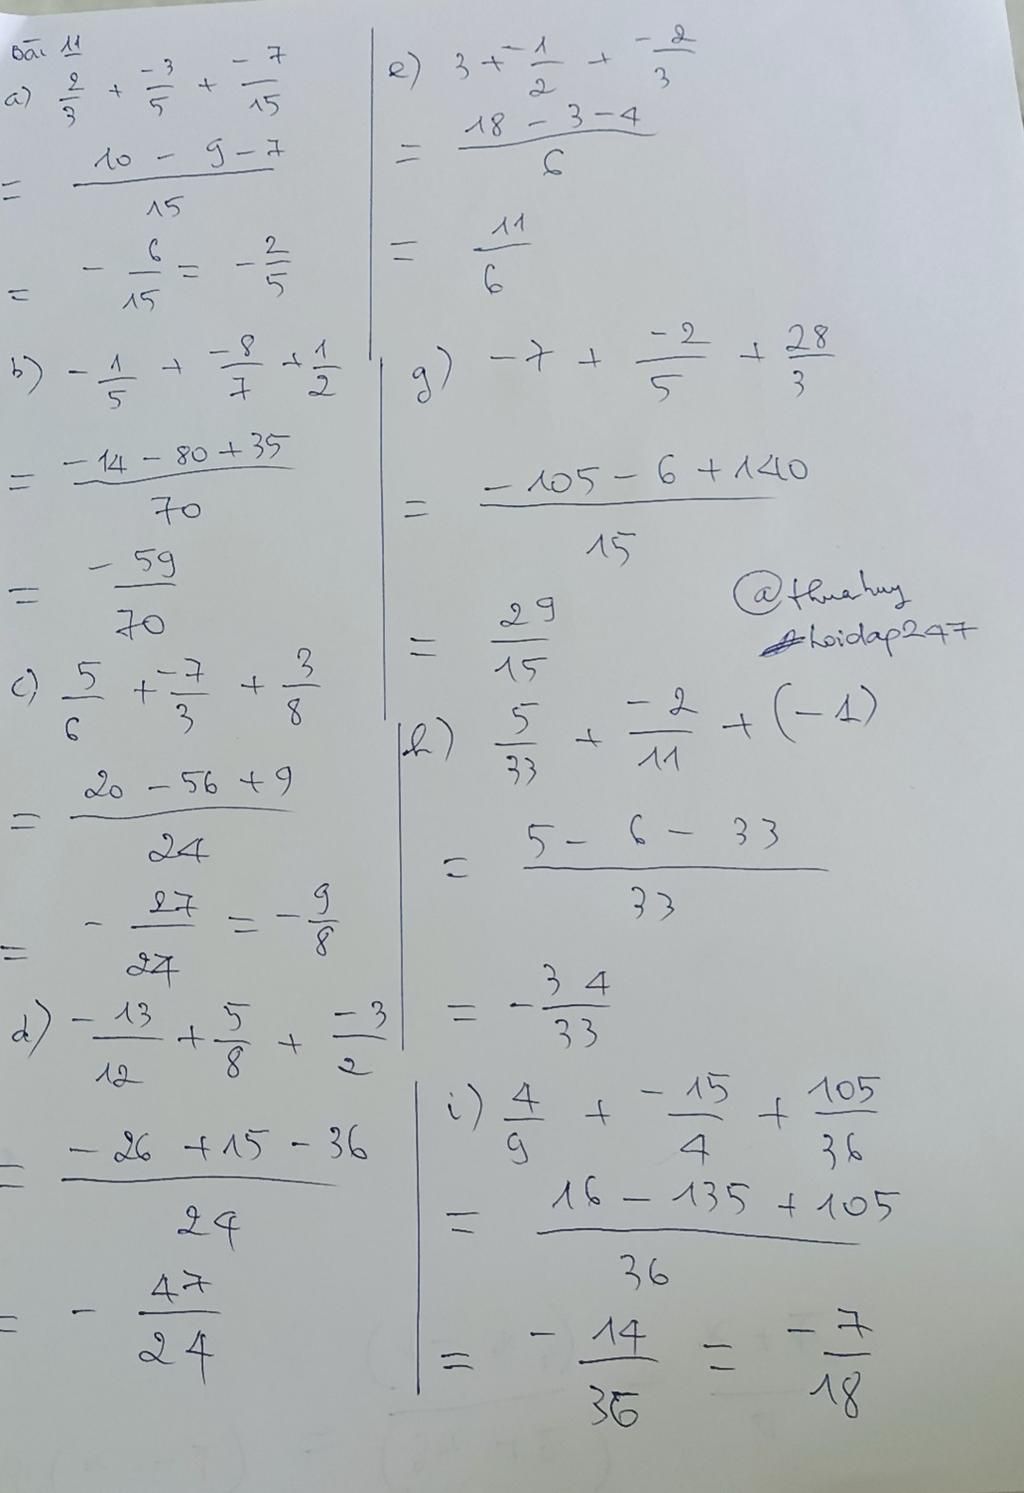 Bài 11
a) 2/3 + -3/5 + -7/15
= (10 - 9 - 7)/15
= - 6/15 = - 2/5
b) - 1/5 + -8/7 + 1/2
= (-14 - 80 + 35)/70
= -59/70
c) 5/6 + -7/3 + 3/8
= (20 - 56 + 9)/24
= - 27/24 = - 9/8
d) -13/12 + 5/8 + -3/2
= (-26 + 15 - 36)/24
= - 47/24
e) 3 + -1/2 + -2/3
= (18 - 3 - 4)/6
= 11/6
g) -7 + -2/5 + 28/3
= (-105 - 6 + 140)/15
= 29/15
@thuahuy
hoidap247
h) 5/33 + -2/11 + (-1)
= (5 - 6 - 33)/33
= - 34/33
i) 4/9 + -15/4 + 105/36
= (16 - 135 + 105)/36
= - 14/36 = -7/18